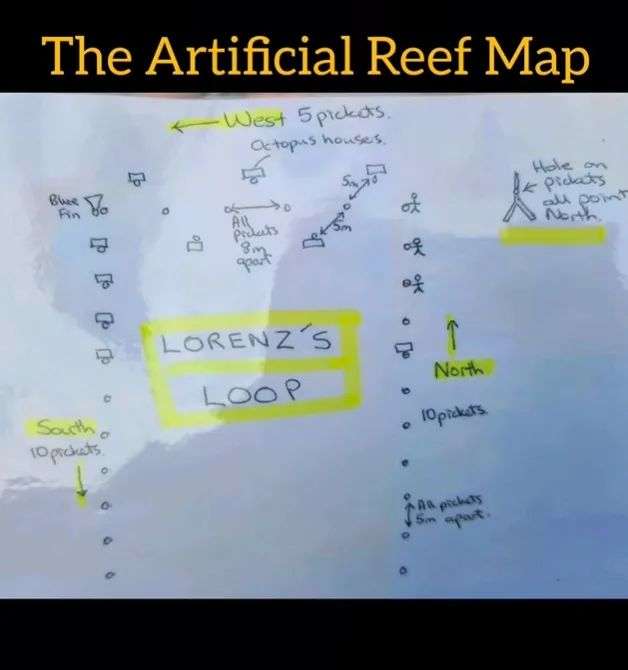 The Artificial Reef Map
← West 5 pickets.
Octopus houses.
Blue
Fin
5m
5m
All
pickets
8m
apart
Hole on
pickets
all point
North.
LORENZ'S
LOOP
North
South
10 pickets.
10 pickets
All pickets
5m apart.